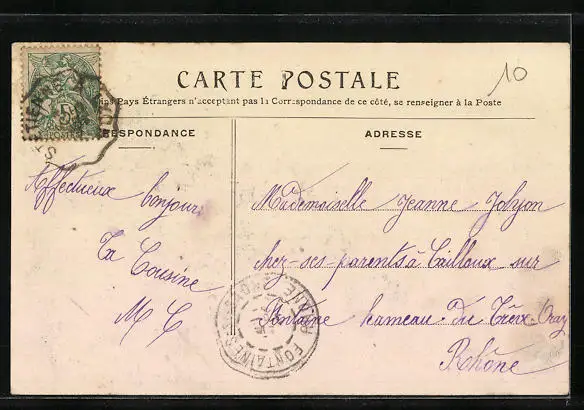 10
CARTE POSTALE
Pays Étrangers n'acceptent pas la Correspondance de ce côté, se renseigner à la Poste
RESPONDANCE
ADRESSE
Affectueux bonjours
Ta Cousine
M C
Mademoiselle Jeanne
chez ses parents à Cailloux sur
Fontaine hameau du
Rhône
5
POSTES
FONTAINES
RHONE